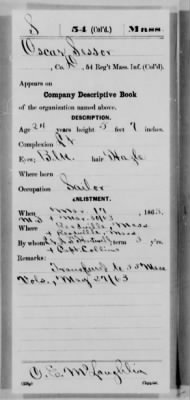 S 54 (Col'd.) Mass
Oscar
, Co. D, 54 Reg't Mass. Inf. (Col'd.)
Appears on
Company Descriptive Book
of the organization named above.
DESCRIPTION.
Age 24 years; height 5 feet 7 inches.
Complexion Lt
Eyes; Blk hair
Where born
Occupation Sailor
ENLISTMENT.
When Mar. 17, 1863.
Where Readville, Mass
Readville, Mass
By whom term 3 y'rs.
+ Capt. Collins
Remarks:
Transferred to 55 Mass
Vols., May 1863
McLaughlin
Copyist.